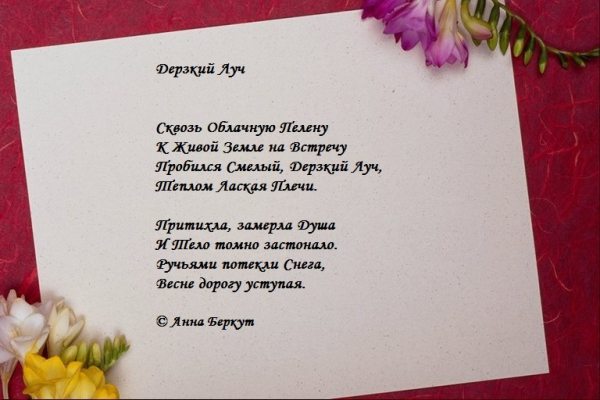 Дерзкий Луч
Сквозь Облачную Пелену
К Живой Земле на Встречу
Пробился Смелый, Дерзкий Луч,
Теплом Лаская Плечи.
Притихла, замерла Душа
И Тело томно застонало.
Ручьями потекли Снега,
Весне дорогу уступая.
© Анна Беркут